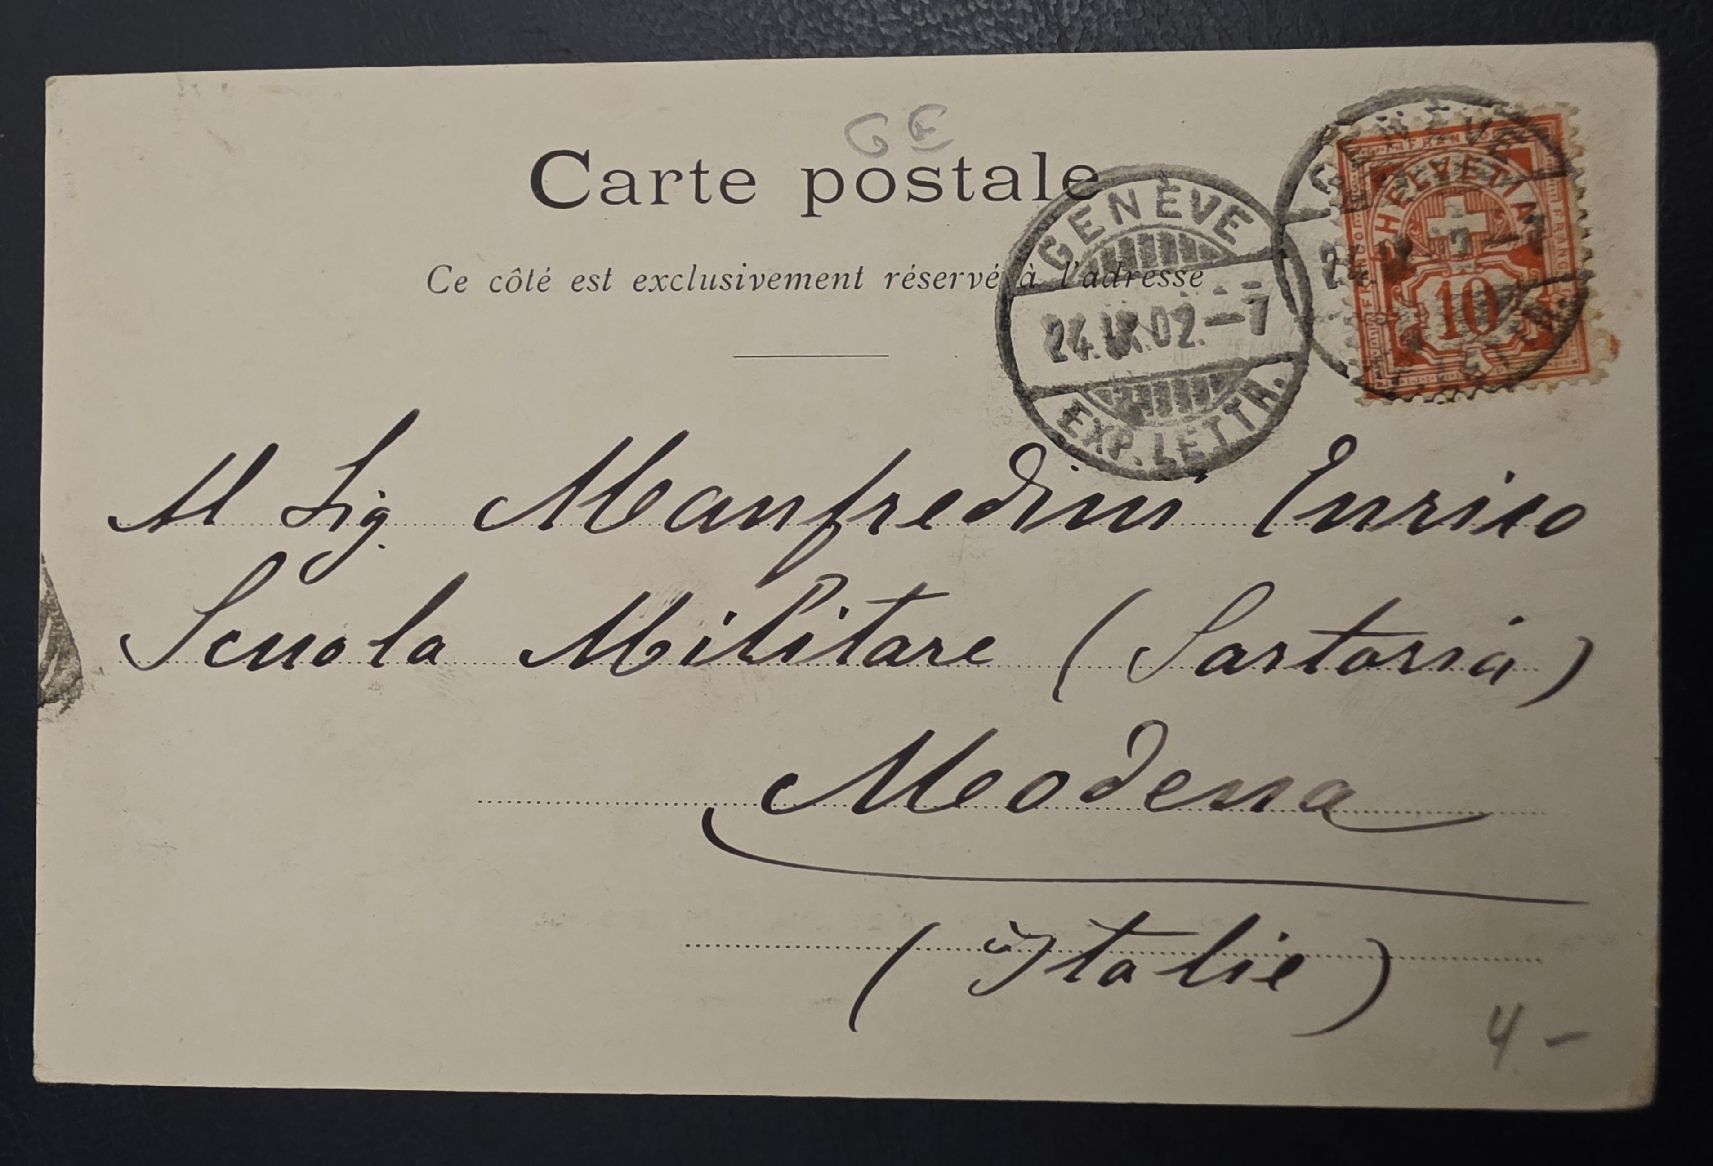 GE
Carte postale
Ce côté est exclusivement réservé à l'adresse
GENÈVE
24.IX.02.-7
EXP. LETTR.
GENÈVE
FRANCO
HELVETIA
10
Al Sig. Manfredini Enrico
Scuola Militare (Sartoria)
Modena
(Italie)
4.-